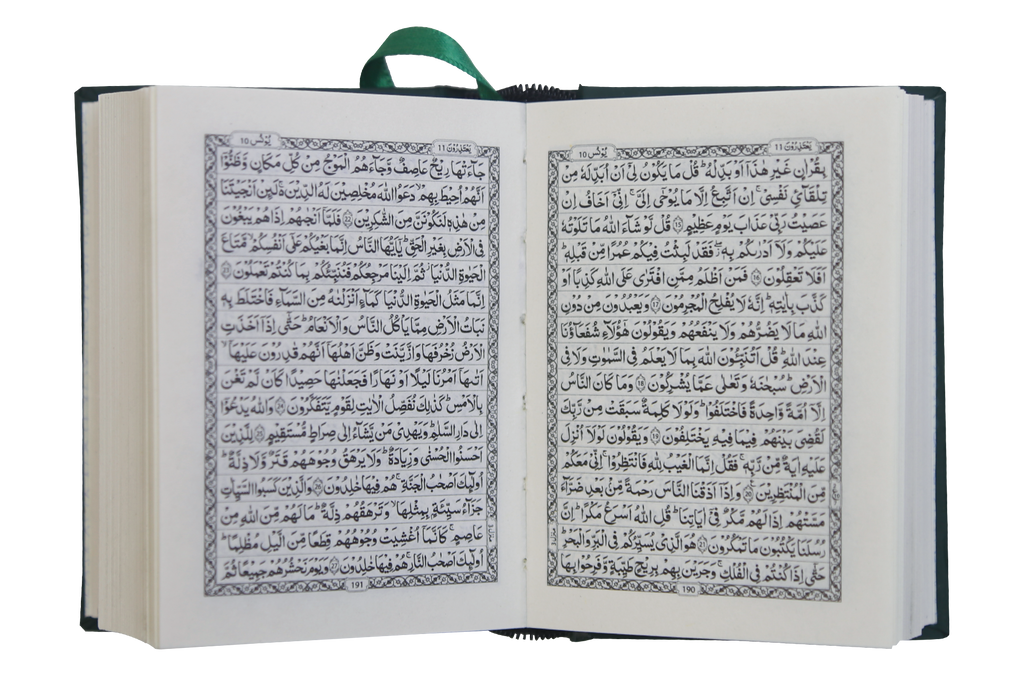 يَعْتَذِرُوْنَ 11
يُوْنُس 10
بِقُرْاٰنٍ غَيْرِ هٰذَاۤ اَوْ بَدِّلْهُ ؕ قُلْ مَا يَكُوْنُ لِيْۤ اَنْ اُبَدِّلَهٗ مِنْ
تِلْقَآئِ نَفْسِيْ ۚ اِنْ اَتَّبِعُ اِلَّا مَا يُوْحٰۤى اِلَيَّ ۚ اِنِّيْۤ اَخَافُ اِنْ
عَصَيْتُ رَبِّيْ عَذَابَ يَوْمٍ عَظِيْمٍ ﴿15﴾ قُلْ لَّوْ شَآءَ اللّٰهُ مَا تَلَوْتُهٗ
عَلَيْكُمْ وَلَاۤ اَدْرٰىكُمْ بِهٖ ۖ فَقَدْ لَبِثْتُ فِيْكُمْ عُمُرًا مِّنْ قَبْلِهٖ ؕ
اَفَلَا تَعْقِلُوْنَ ﴿16﴾ فَمَنْ اَظْلَمُ مِمَّنِ افْتَرٰى عَلَى اللّٰهِ كَذِبًا اَوْ
كَذَّبَ بِاٰيٰتِهٖ ؕ اِنَّهٗ لَا يُفْلِحُ الْمُجْرِمُوْنَ ﴿17﴾ وَيَعْبُدُوْنَ مِنْ دُوْنِ
اللّٰهِ مَا لَا يَضُرُّهُمْ وَلَا يَنْفَعُهُمْ وَيَقُوْلُوْنَ هٰۤؤُلَآءِ شُفَعَآؤُنَا
عِنْدَ اللّٰهِ ؕ قُلْ اَتُنَبِّـُٔوْنَ اللّٰهَ بِمَا لَا يَعْلَمُ فِي السَّمٰوٰتِ وَلَا فِي
الْاَرْضِ ؕ سُبْحٰنَهٗ وَتَعٰلٰى عَمَّا يُشْرِكُوْنَ ﴿18﴾ وَمَا كَانَ النَّاسُ
اِلَّاۤ اُمَّةً وَّاحِدَةً فَاخْتَلَفُوْا ؕ وَلَوْلَا كَلِمَةٌ سَبَقَتْ مِنْ رَّبِّكَ
لَقُضِيَ بَيْنَهُمْ فِيْمَا فِيْهِ يَخْتَلِفُوْنَ ﴿19﴾ وَيَقُوْلُوْنَ لَوْلَاۤ اُنْزِلَ
عَلَيْهِ اٰيَةٌ مِّنْ رَّبِّهٖ ۚ فَقُلْ اِنَّمَا الْغَيْبُ لِلّٰهِ فَانْتَظِرُوْا ۚ اِنِّيْ مَعَكُمْ
مِّنَ الْمُنْتَظِرِيْنَ ﴿20﴾ وَاِذَاۤ اَذَقْنَا النَّاسَ رَحْمَةً مِّنْۢ بَعْدِ ضَرَّآءَ
مَسَّتْهُمْ اِذَا لَهُمْ مَّكْرٌ فِيْۤ اٰيَاتِنَا ؕ قُلِ اللّٰهُ اَسْرَعُ مَكْرًا ؕ اِنَّ
رُسُلَنَا يَكْتُبُوْنَ مَا تَمْكُرُوْنَ ﴿21﴾ هُوَ الَّذِيْ يُسَيِّرُكُمْ فِي الْبَرِّ وَالْبَحْرِ ؕ
حَتّٰۤى اِذَا كُنْتُمْ فِي الْفُلْكِ ۚ وَجَرَيْنَ بِهِمْ بِرِيْحٍ طَيِّبَةٍ وَّفَرِحُوْا بِهَا
190
يَعْتَذِرُوْنَ 11
يُوْنُس 10
جَآءَتْهَا رِيْحٌ عَاصِفٌ وَّجَآءَهُمُ الْمَوْجُ مِنْ كُلِّ مَكَانٍ وَّظَنُّوْۤا
اَنَّهُمْ اُحِيْطَ بِهِمْ ۙ دَعَوُا اللّٰهَ مُخْلِصِيْنَ لَهُ الدِّيْنَ ۚ لَئِنْ اَنْجَيْتَنَا
مِنْ هٰذِهٖ لَنَكُوْنَنَّ مِنَ الشّٰكِرِيْنَ ﴿22﴾ فَلَمَّاۤ اَنْجٰىهُمْ اِذَا هُمْ يَبْغُوْنَ
فِي الْاَرْضِ بِغَيْرِ الْحَقِّ ؕ يٰۤاَيُّهَا النَّاسُ اِنَّمَا بَغْيُكُمْ عَلٰۤى اَنْفُسِكُمْ ۙ مَّتَاعَ
الْحَيٰوةِ الدُّنْيَا ۖ ثُمَّ اِلَيْنَا مَرْجِعُكُمْ فَنُنَبِّئُكُمْ بِمَا كُنْتُمْ تَعْمَلُوْنَ ﴿23﴾
اِنَّمَا مَثَلُ الْحَيٰوةِ الدُّنْيَا كَمَآءٍ اَنْزَلْنٰهُ مِنَ السَّمَآءِ فَاخْتَلَطَ بِهٖ
نَبَاتُ الْاَرْضِ مِمَّا يَاْكُلُ النَّاسُ وَالْاَنْعَامُ ؕ حَتّٰۤى اِذَاۤ اَخَذَتِ
الْاَرْضُ زُخْرُفَهَا وَازَّيَّنَتْ وَظَنَّ اَهْلُهَاۤ اَنَّهُمْ قٰدِرُوْنَ عَلَيْهَاۤ ۙ
اَتٰىهَاۤ اَمْرُنَا لَيْلًا اَوْ نَهَارًا فَجَعَلْنٰهَا حَصِيْدًا كَاَنْ لَّمْ تَغْنَ
بِالْاَمْسِ ؕ كَذٰلِكَ نُفَصِّلُ الْاٰيٰتِ لِقَوْمٍ يَّتَفَكَّرُوْنَ ﴿24﴾ وَاللّٰهُ يَدْعُوْۤا
اِلٰى دَارِ السَّلٰمِ ؕ وَيَهْدِيْ مَنْ يَّشَآءُ اِلٰى صِرَاطٍ مُّسْتَقِيْمٍ ﴿25﴾ لِلَّذِيْنَ
اَحْسَنُوا الْحُسْنٰى وَزِيَادَةٌ ؕ وَلَا يَرْهَقُ وُجُوْهَهُمْ قَتَرٌ وَّلَا ذِلَّةٌ ؕ
اُولٰٓئِكَ اَصْحٰبُ الْجَنَّةِ ۚ هُمْ فِيْهَا خٰلِدُوْنَ ﴿26﴾ وَالَّذِيْنَ كَسَبُوا السَّيِّاٰتِ
جَزَآءُ سَيِّئَةٍۭ بِمِثْلِهَا ۙ وَتَرْهَقُهُمْ ذِلَّةٌ ؕ مَا لَهُمْ مِّنَ اللّٰهِ مِنْ
عَاصِمٍ ۚ كَاَنَّمَاۤ اُغْشِيَتْ وُجُوْهُهُمْ قِطَعًا مِّنَ الَّيْلِ مُظْلِمًا ؕ
اُولٰٓئِكَ اَصْحٰبُ النَّارِ ۚ هُمْ فِيْهَا خٰلِدُوْنَ ﴿27﴾ وَيَوْمَ نَحْشُرُهُمْ جَمِيْعًا ثُمَّ
191